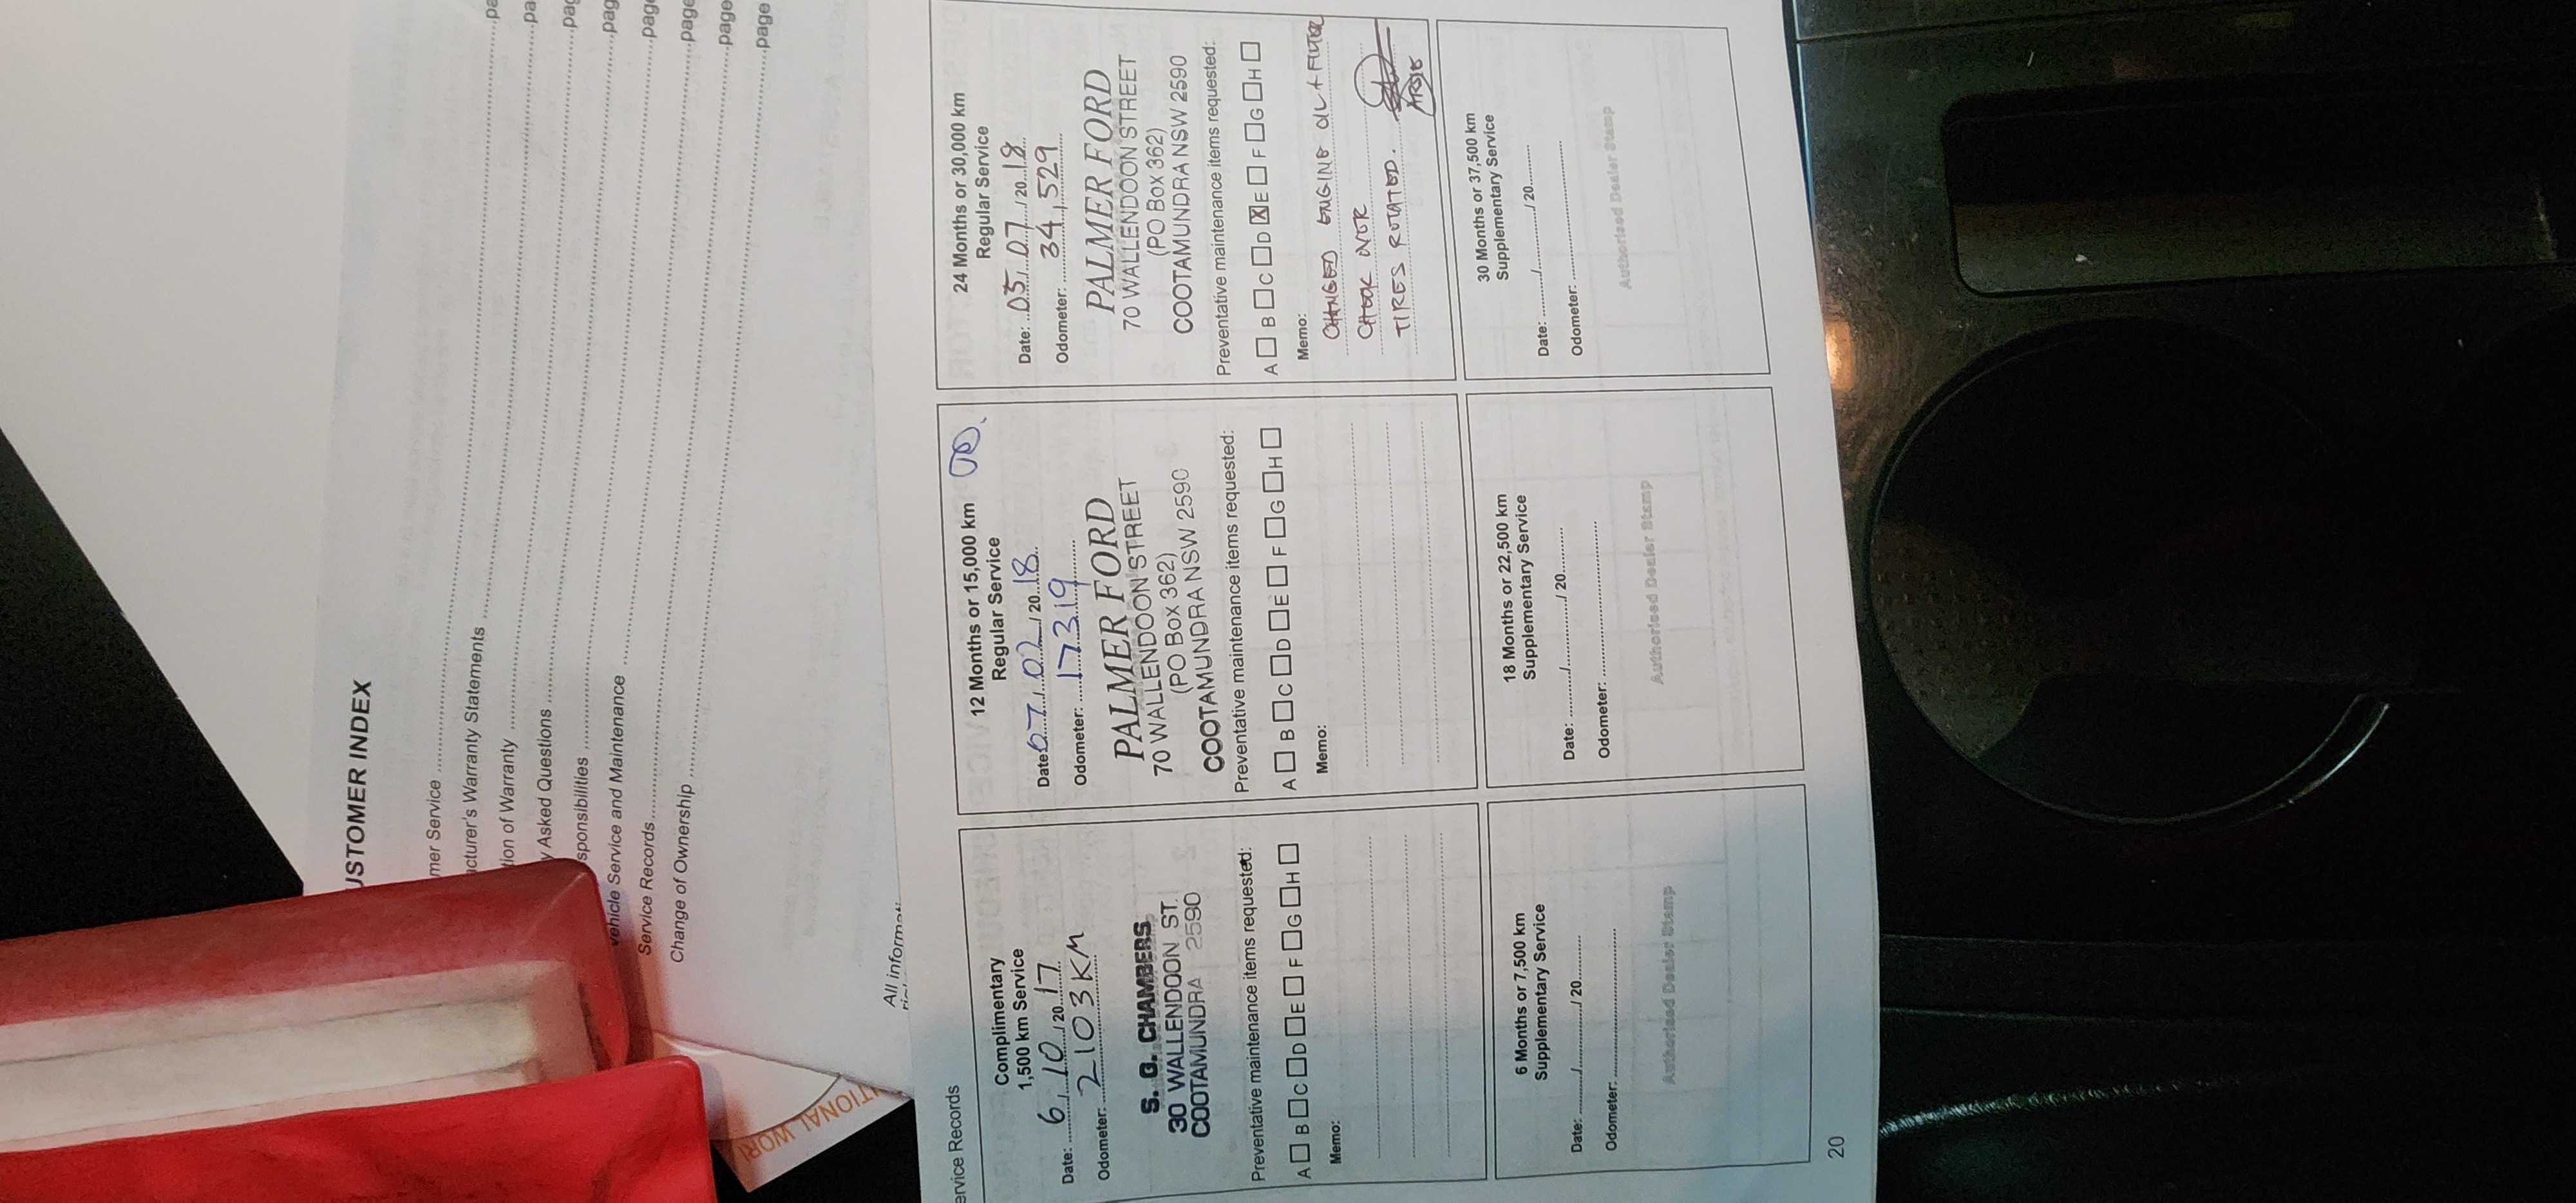 USTOMER INDEX
mer Service ........ pa
acturer's Warranty Statements ........ pa
tion of Warranty ........ pag
y Asked Questions ........ pag
sponsibilities ........ page
vehicle Service and Maintenance ........ page
Service Records ........ page
Change of Ownership ........ page
All informati
TIONAL WOR
ervice Records
Complimentary
1,500 km Service
Date: 6 / 10 / 20 17
Odometer: 2103KM
S. G. CHAMBERS
30 WALLENDOON ST.
COOTAMUNDRA 2590
Preventative maintenance items requested:
A □ B □ C □ D □ E □ F □ G □ H □
Memo:
12 Months or 15,000 km
Regular Service
Date: 07 / 02 / 20 18
Odometer: 17319
PALMER FORD
70 WALLENDOON STREET
(PO Box 362)
COOTAMUNDRA NSW 2590
Preventative maintenance items requested:
A □ B □ C □ D □ E □ F □ G □ H □
Memo:
24 Months or 30,000 km
Regular Service
Date: 05 / 07 / 20 18
Odometer: 34,529
PALMER FORD
70 WALLENDOON STREET
(PO Box 362)
COOTAMUNDRA NSW 2590
Preventative maintenance items requested:
A □ B □ C □ D ☒ E □ F □ G □ H □
Memo:
CHANGED ENGINE OIL + FILTER
CHECK NOTE
TIRES ROTATED.
6 Months or 7,500 km
Supplementary Service
Date: ......../......../ 20........
Odometer:
Authorised Dealer Stamp
18 Months or 22,500 km
Supplementary Service
Date: ......../......../ 20........
Odometer:
Authorised Dealer Stamp
30 Months or 37,500 km
Supplementary Service
Date: ......../......../ 20........
Odometer:
Authorised Dealer Stamp
20